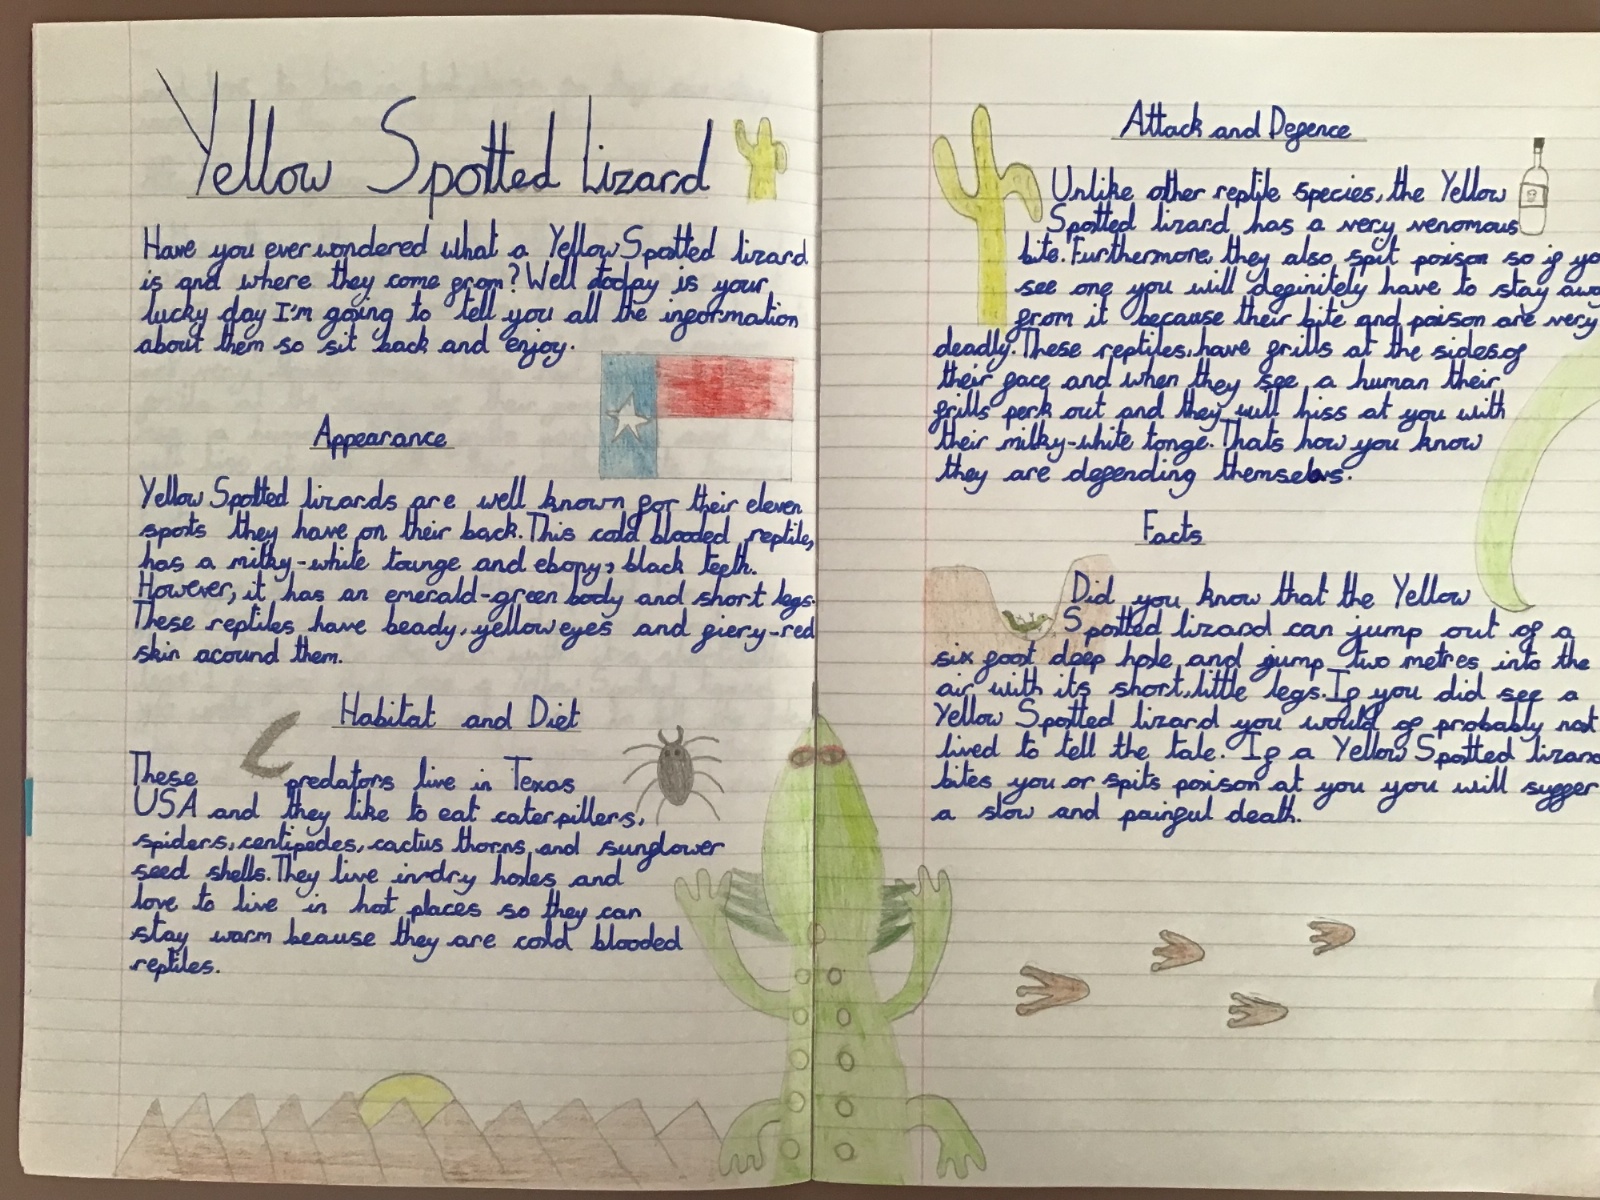 Yellow Spotted Lizard
Have you ever wondered what a Yellow Spotted lizard
is and where they come from? Well today is your
lucky day I'm going to tell you all the information
about them so sit back and enjoy.
Appearance
Yellow Spotted lizards are well known for their eleven
spots they have on their back. This cold blooded reptile,
has a milky-white tounge and ebony, black teeth.
However, it has an emerald-green body and short legs.
These reptiles have beady, yellow eyes and fiery-red
skin acound them.
Habitat and Diet
These predators live in Texas
USA and they like to eat caterpillers,
spiders, centipedes, cactus thorns and sunflower
seed shells. They live in dry holes and
love to live in hot places so they can
stay warm beause they are cold blooded
reptiles.
Attack and Defence
Unlike other reptile species, the Yellow
Spotted lizard has a very venomous
bite. Furthermore, they also spit poison so if yo
see one you will definitely have to stay awa
from it because their bite and poison are very
deadly. These reptiles, have frills at the sides of
their face and when they see a human their
frills perk out and they will hiss at you with
their milky-white tonge. Thats how you know
they are defending themselvs.
Facts
Did you know that the Yellow
Spotted lizard can jump out of a
six foot deep hole and jump two metres into the
air with its short, little legs. If you did see a
Yellow Spotted lizard you would of probably not
lived to tell the tale. If a Yellow Spotted lizard
bites you or spits poison at you you will suffer
a slow and painful death.